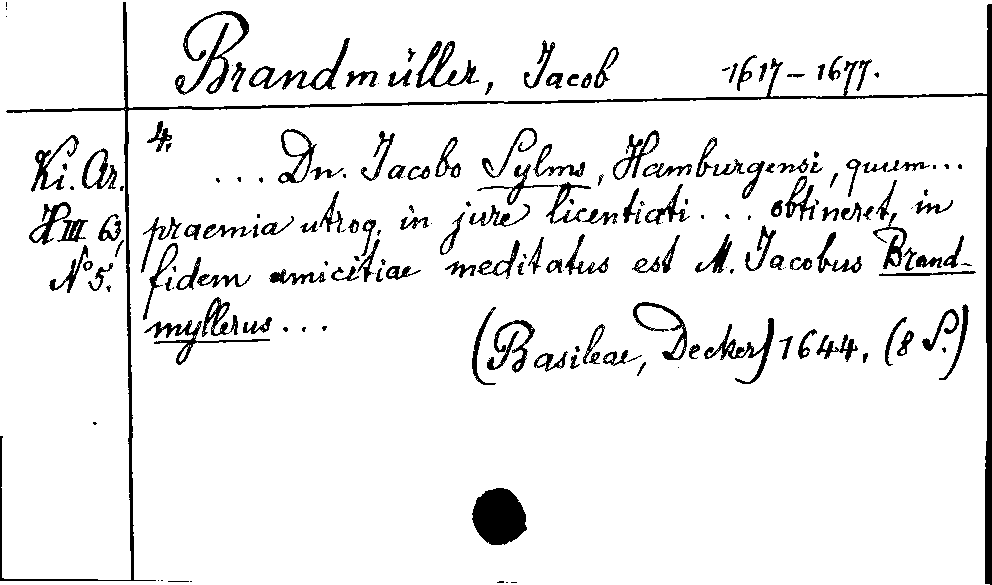 Brandmüller, Jacob 1617-1677.
Ki. Ar.
H III 63,
No 5.
4.
... Dn. Jacobo Sylms, Hamburgensi, quum...
praemia utroq. in jure licentiati... obtineret, in
fidem amicitiae meditatus est M. Jacobus Brand-
myllerus...
(Basileae, Decker) 1644. (8 S.)